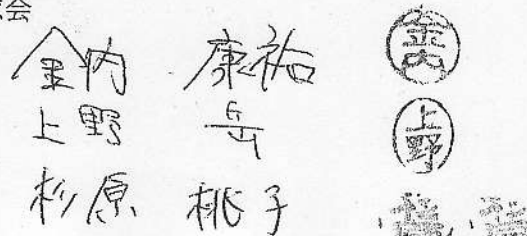 会
金内 康祐 金内
上野 岳 上野
杉原 桃子